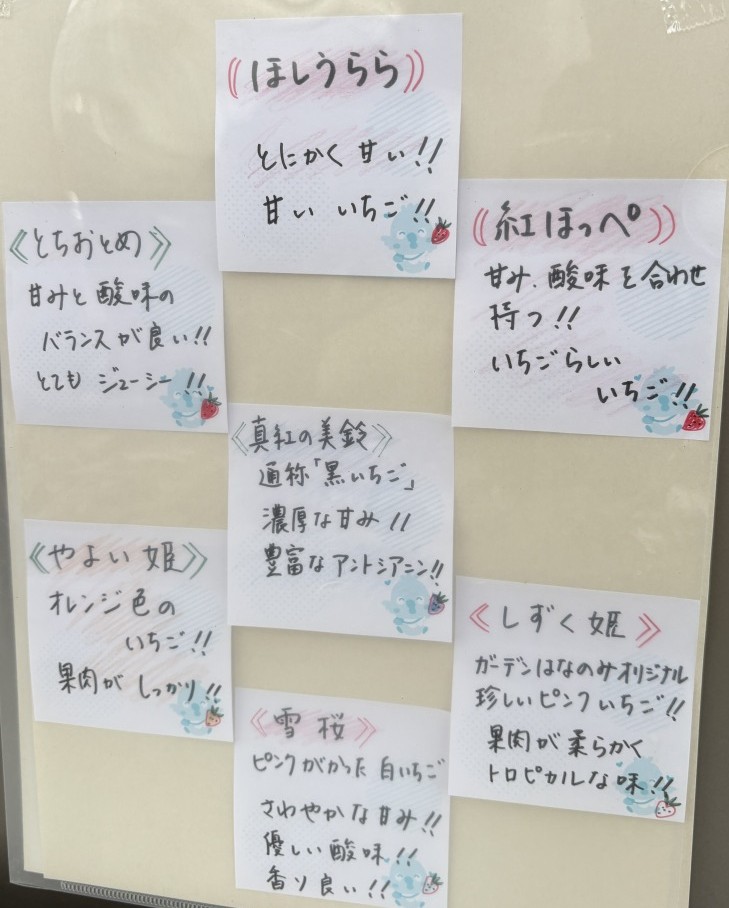 《ほしうらら》
とにかく甘い!!
甘い いちご!!
《とちおとめ》
甘みと酸味の
バランスが良い!!
とても ジューシー!!
《紅ほっぺ》
甘み、酸味を合わせ
持つ!!
いちごらしい
いちご!!
《真紅の美鈴》
通称「黒いちご」
濃厚な甘み!!
豊富なアントシアニン!!
《やよい姫》
オレンジ色の
いちご!!
果肉が しっかり!!
《しずく姫》
ガーデンはなのみオリジナル
珍しいピンクいちご!!
果肉が柔らかく
トロピカルな味!!
《雪桜》
ピンクがかった白いちご
さわやかな甘み!!
優しい酸味!!
香り良い!!